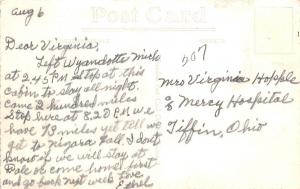 Post Card
Aug 6
Dear Virginia,
Left Wyandotte Mich
at 2.45 P.M. Stop at this
cabin to stay all night.
Came 2 hundred miles
Stop here at 8.20 P.M. we
have 73 miles yet tell we
get to Niagara Fall. I don't
know if we will stay at
Dale or come home first
and go back next week Love
Ethel
507
Mrs Virginia Hopple
% Mercy Hospital
Tiffin, Ohio